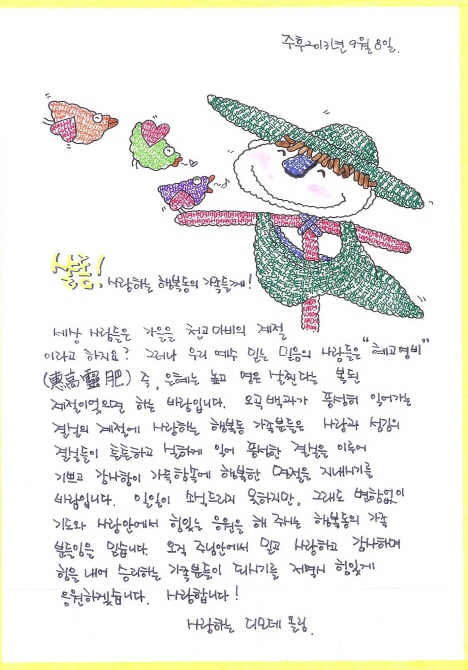 주후2013년 9월 8일.
샬롬! 사랑하는 행복동의 가족들께!
세상 사람들은 가을을 천고마비의 계절
이라고 하지요? 그러나 우리 예수 믿는 믿음의 사람들은 "혜고영비"
(惠高靈肥) 즉, 은혜는 높고 영은 살찐다는 복된
계절이었으면 하는 바람입니다. 오곡백과가 풍성히 익어가는
결실의 계절에 사랑하는 행복동 가족분들은 사랑과 섬김의
결실들이 튼튼하고 실하게 익어 풍성한 결실을 이루어
기쁘고 감사함이 가득함속에 행복한 명절을 지내시기를
바람입니다. 일일이 소식드리지 못하지만, 그래도 변함없이
기도와 사랑안에서 힘있는 응원을 해 주시는 행복동의 가족
분들임을 믿습니다. 오직 주님안에서 믿고 사랑하고 감사하며
힘을 내어 승리하는 가족분들이 되시기를 저역시 힘있게
응원하겠습니다. 사랑합니다!
사랑하는 디모데 올림.